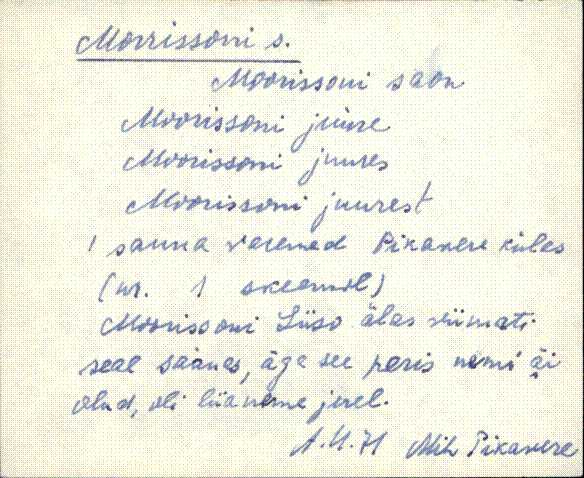 Morrissoni s.
Moorissoni saon
Moorissoni juure
Moorissoni juures
Moorissoni juurest
1 sauna varemed Pikavere külas
(nr. 1 skeemil)
Moorissoni Liiso älas viimati
seal saanas, äga see peris nimi äi
olnd, oli liianeme jerel.
A.U.71 Mih Pikavere